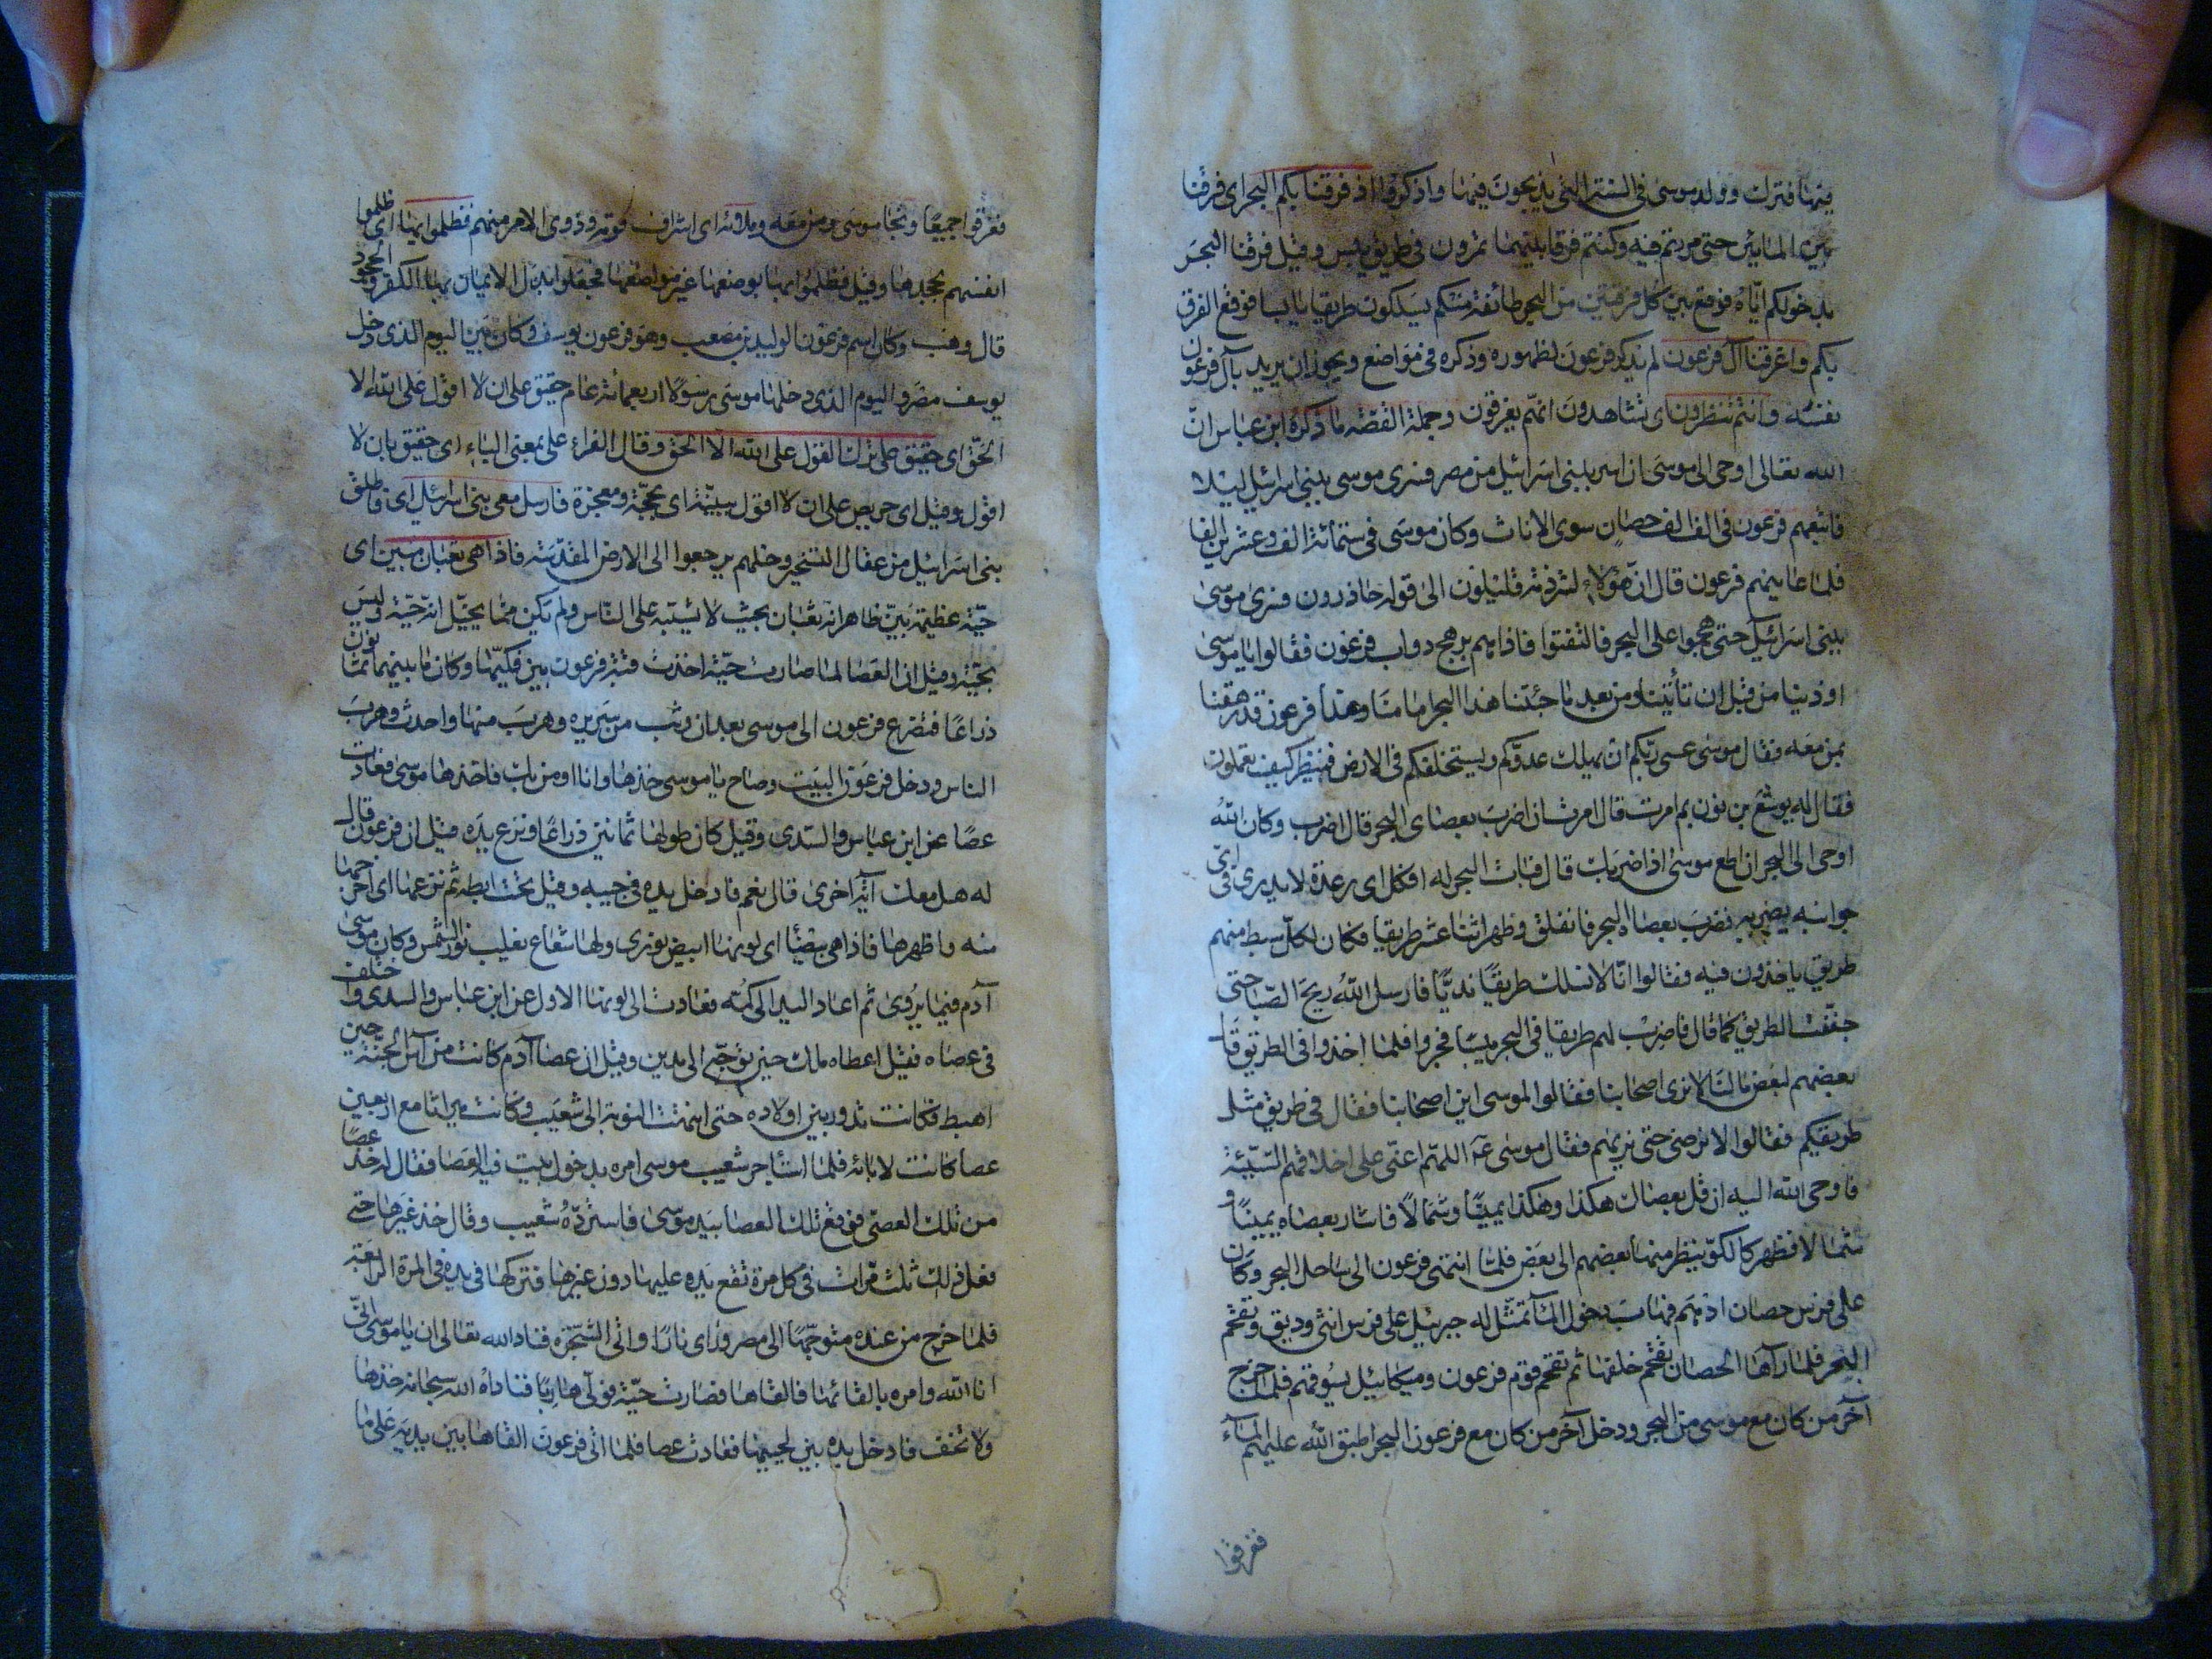 فيها فترك وولد موسى في السنة التي يذبحون فيها واذكروا اذ فرقنا بكم البحر اى فرقنا
بين المائين حتى مررتم فيه وكنتم فرقا بينهما تمرون في طريق يابس وقيل فرقنا البحر
بدخولكم اياه فوقع بين كل فرقتين من البحر طائفة منكم يسلكون طريقا يابسا فوقع الفرق
بكم واغرقنا آل فرعون لم يذكر فرعون لظهوره وذكره في مواضع ويجوز ان يريد بآل فرعون
نفسه وانتم تنظرون اى تشاهدون انهم يغرقون وجملة القصة ما ذكره ابن عباس ان
الله تعالى اوحى الى موسى ان اسر ببنى اسرائيل من مصر فسرى موسى ببنى اسرائيل ليلا
فاتبعهم فرعون في الف الف حصان سوى الاناث وكان موسى في ستمائة الف وعشرين الفا
فلما عاينهم فرعون قال ان هؤلاء لشرذمة قليلون الى قوله حاذرون فسرى موسى
ببنى اسرائيل حتى هجموا على البحر فالتفتوا فاذا هم برهج دواب فرعون فقالوا يا موسى
اوذينا من قبل ان تأتينا ومن بعد ما جئتنا هذا البحر امامنا وهذا فرعون قد رهقنا
بمن معه فقال موسى عسى ربكم ان يهلك عدوكم ويستخلفكم في الارض فينظر كيف تعملون
فقال له يوشع بن نون بم امرت قال امرت ان اضرب بعصاى البحر قال اضرب وكان الله
اوحى الى البحر ان اطع موسى اذا ضربك قال فبات البحر له افكل اى رعدة لا يدرى في اى
جوانبه يضربه فضرب بعصاه البحر فانفلق وظهر اثنا عشر طريقا فكان لكل سبط منهم
طريق ياخذون فيه فقالوا انا لا نسلك طريقا نديا فارسل الله ريح الصبا حتى
جففت الطريق كما قال فاضرب لهم طريقا في البحر يبسا فجروا فلما اخذوا في الطريق قال
بعضهم لبعض ما لنا لا نرى اصحابنا فقالوا لموسى اين اصحابنا فقال في طريق مثل
طريقكم فقالوا لا نرضى حتى نريهم فقال موسى عه اللهم اعنى على اخلاقهم السيئة
فاوحى الله اليه ان قل بعصاك هكذا وهكذا يمينا وشمالا فاشار بعصاه يمينا و
شمالا فظهر كالكو ينظر منها بعضهم الى بعض فلما انتهى فرعون الى ساحل البحر وكان
على فرس حصان ادهم فهاب دخول الماء تمثل له جبرئيل على فرس انثى وديق وتقحم
البحر فلما رآها الحصان تقحم خلفها ثم تقحم قوم فرعون وميكائيل يسوقهم فلما خرج
آخر من كان مع موسى من البحر ودخل آخر من كان مع فرعون البحر اطبق الله عليهم الماء
فغرقوا
فغرقوا جميعا ونجا موسى ومن معه وملائه اى اشراف قومه وذوى الامر منهم فظلموا بها اى ظلموا
انفسهم بجحدها وقيل فظلموا بها بوضعها غير مواضعها فجعلوا بدل الايمان بها الكفر والجحود
قال وهب وكان اسم فرعون الوليد بن مصعب وهو فرعون يوسف وكان بين اليوم الذى دخل
يوسف مصر واليوم الذى دخلها موسى رسولا اربعمائة عام حقيق على ان لا اقول على الله الا
الحق اى حقيق على ترك القول على الله الا الحق وقال الفراء على بمعنى الباء اى حقيق بان لا
اقول وقيل اى حريص على ان لا اقول ببينة اى بحجة ومعجزة فارسل معى بنى اسرائيل اى فاطلق
بنى اسرائيل من عقال التسخير وخلهم يرجعوا الى الارض المقدسة فاذا هى ثعبان مبين اى
حية عظيمة بين ظاهر انه ثعبان بحيث لا يشتبه على الناس ولم تكن مما يخيل انه حية وليس
بحية وقيل ان العصا لما صارت حية اخذت قبة فرعون بين فكيها وكان ما بينهما ثمانون
ذراعا فتضرع فرعون الى موسى بعد ان وثب من سريره وهرب منها واحدث وهرب
الناس ودخل فرعون البيت وصاح يا موسى خذها وانا اومن بك فاخذها موسى فعادت
عصا عن ابن عباس والسدى وقيل كان طولها ثمانين ذراعا ونزع يده قيل ان فرعون قال
له هل معك آية اخرى قال نعم فادخل يده في جيبه وقيل تحت ابطه ثم نزعها اى اخرجها
منه واظهرها فاذا هى بيضاء اى لونها ابيض نورى ولها شعاع يغلب نور الشمس وكان موسى
آدم فيما يروى ثم اعاد اليد الى كمه فعادت الى لونها الاول عن ابن عباس والسدى واختلف
في عصاه فقيل اعطاه ملك حين توجه الى مدين وقيل ان عصا آدم كانت من آس الجنة حين
اهبط فكانت تدور بين اولاده حتى انتهت النوبة الى شعيب وكانت ميراثا مع اربعين
عصا كانت لآبائه فلما استأجر شعيب موسى امره بدخول بيت فيه العصا فقال له خذ عصا
من تلك العصى فوقع تلك العصا بيد موسى فاسترده شعيب وقال خذ غيرها حتى
فعل ذلك ثلث مرات في كل مرة تقع يده عليها دون غيرها فتركها في يده في المرة الرابعة
فلما خرج من عنده متوجها الى مصر وراى نارا واتى الشجرة فناداه الله تعالى ان يا موسى انى
انا الله وامره بالقائها فالقاها فصارت حية فولى هاربا فناداه الله سبحانه خذها
ولا تخف فادخل يده بين لحييها فعادت عصا فلما اتى فرعون القاها بين يديه على ما